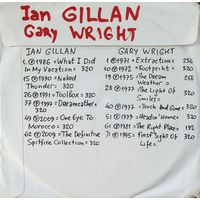 Ian GILLAN
Gary WRIGHT
IAN GILLAN
1.℗1986=What I Did
In My Vacation= 320
15℗1990=Naked
Thunder= 320
26℗1991=Toolbox= 320
37℗1997=Dreamcatcher=
320
49℗2009=One Eye To
Morocco= 320
62℗2009=The Definitive
Spitfire Collection= 320
GARY WRIGHT
1℗1971=Extraction= 256
10℗1972=Footprint= 320
19℗1975=The Dream
Weaver= 256
28℗1977=The Light Of
Smiles= 320
37℗1977=Touch And Gone=
℗1979=Headin Home= 320
51℗1981=The Right Place= 192
61℗1995=First Sight Of
Life= 320